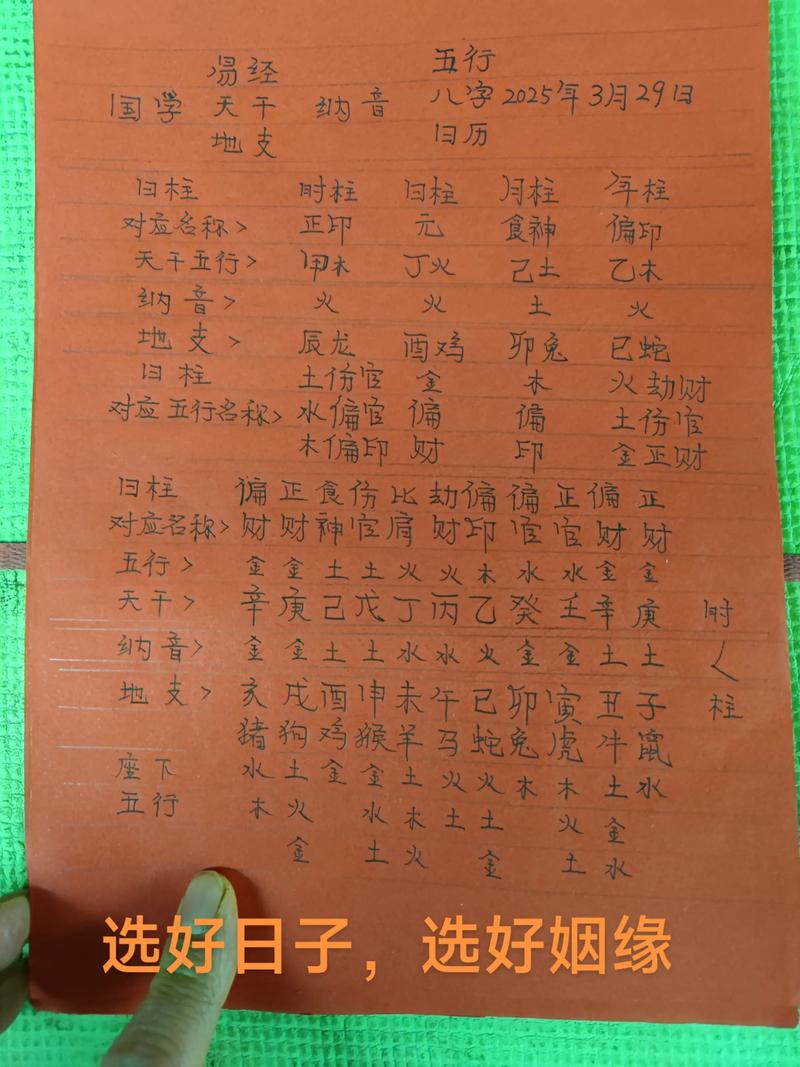 易经 五行
国学 天干 纳音 八字2025年3月29日
地支 日历
日柱 时柱 日柱 月柱 年柱
对应名称> 正印 元 食神 偏印
天干五行> 甲木 丁火 己土 乙木
纳音> 火 火 土 火
地支> 辰龙 酉鸡 卯兔 巳蛇
日柱 土伤官 金 木 火劫财
对应五行名称> 水偏官 偏 偏 土伤官
木偏印 财 印 金正财
日柱 偏 正 食 伤 比 劫 偏 偏 正 偏 正
对应名称> 财 财 神 官 肩 财 印 官 官 财 财
五行> 金 金 土 土 火 火 木 水 水 金 金
天干> 辛 庚 己 戊 丁 丙 乙 癸 壬 辛 庚 时
纳音> 金 金 土 土 水 水 火 金 金 土 土 辰
地支> 亥 戌 酉 申 未 午 巳 卯 寅 丑 子 柱
猪 狗 鸡 猴 羊 马 蛇 兔 虎 牛 鼠
座下 水 土 金 金 土 火 火 木 木 土 水
五行 木 火 水 木 土 土 火 金
金 土 火 金 土 水
选好日子，选好姻缘